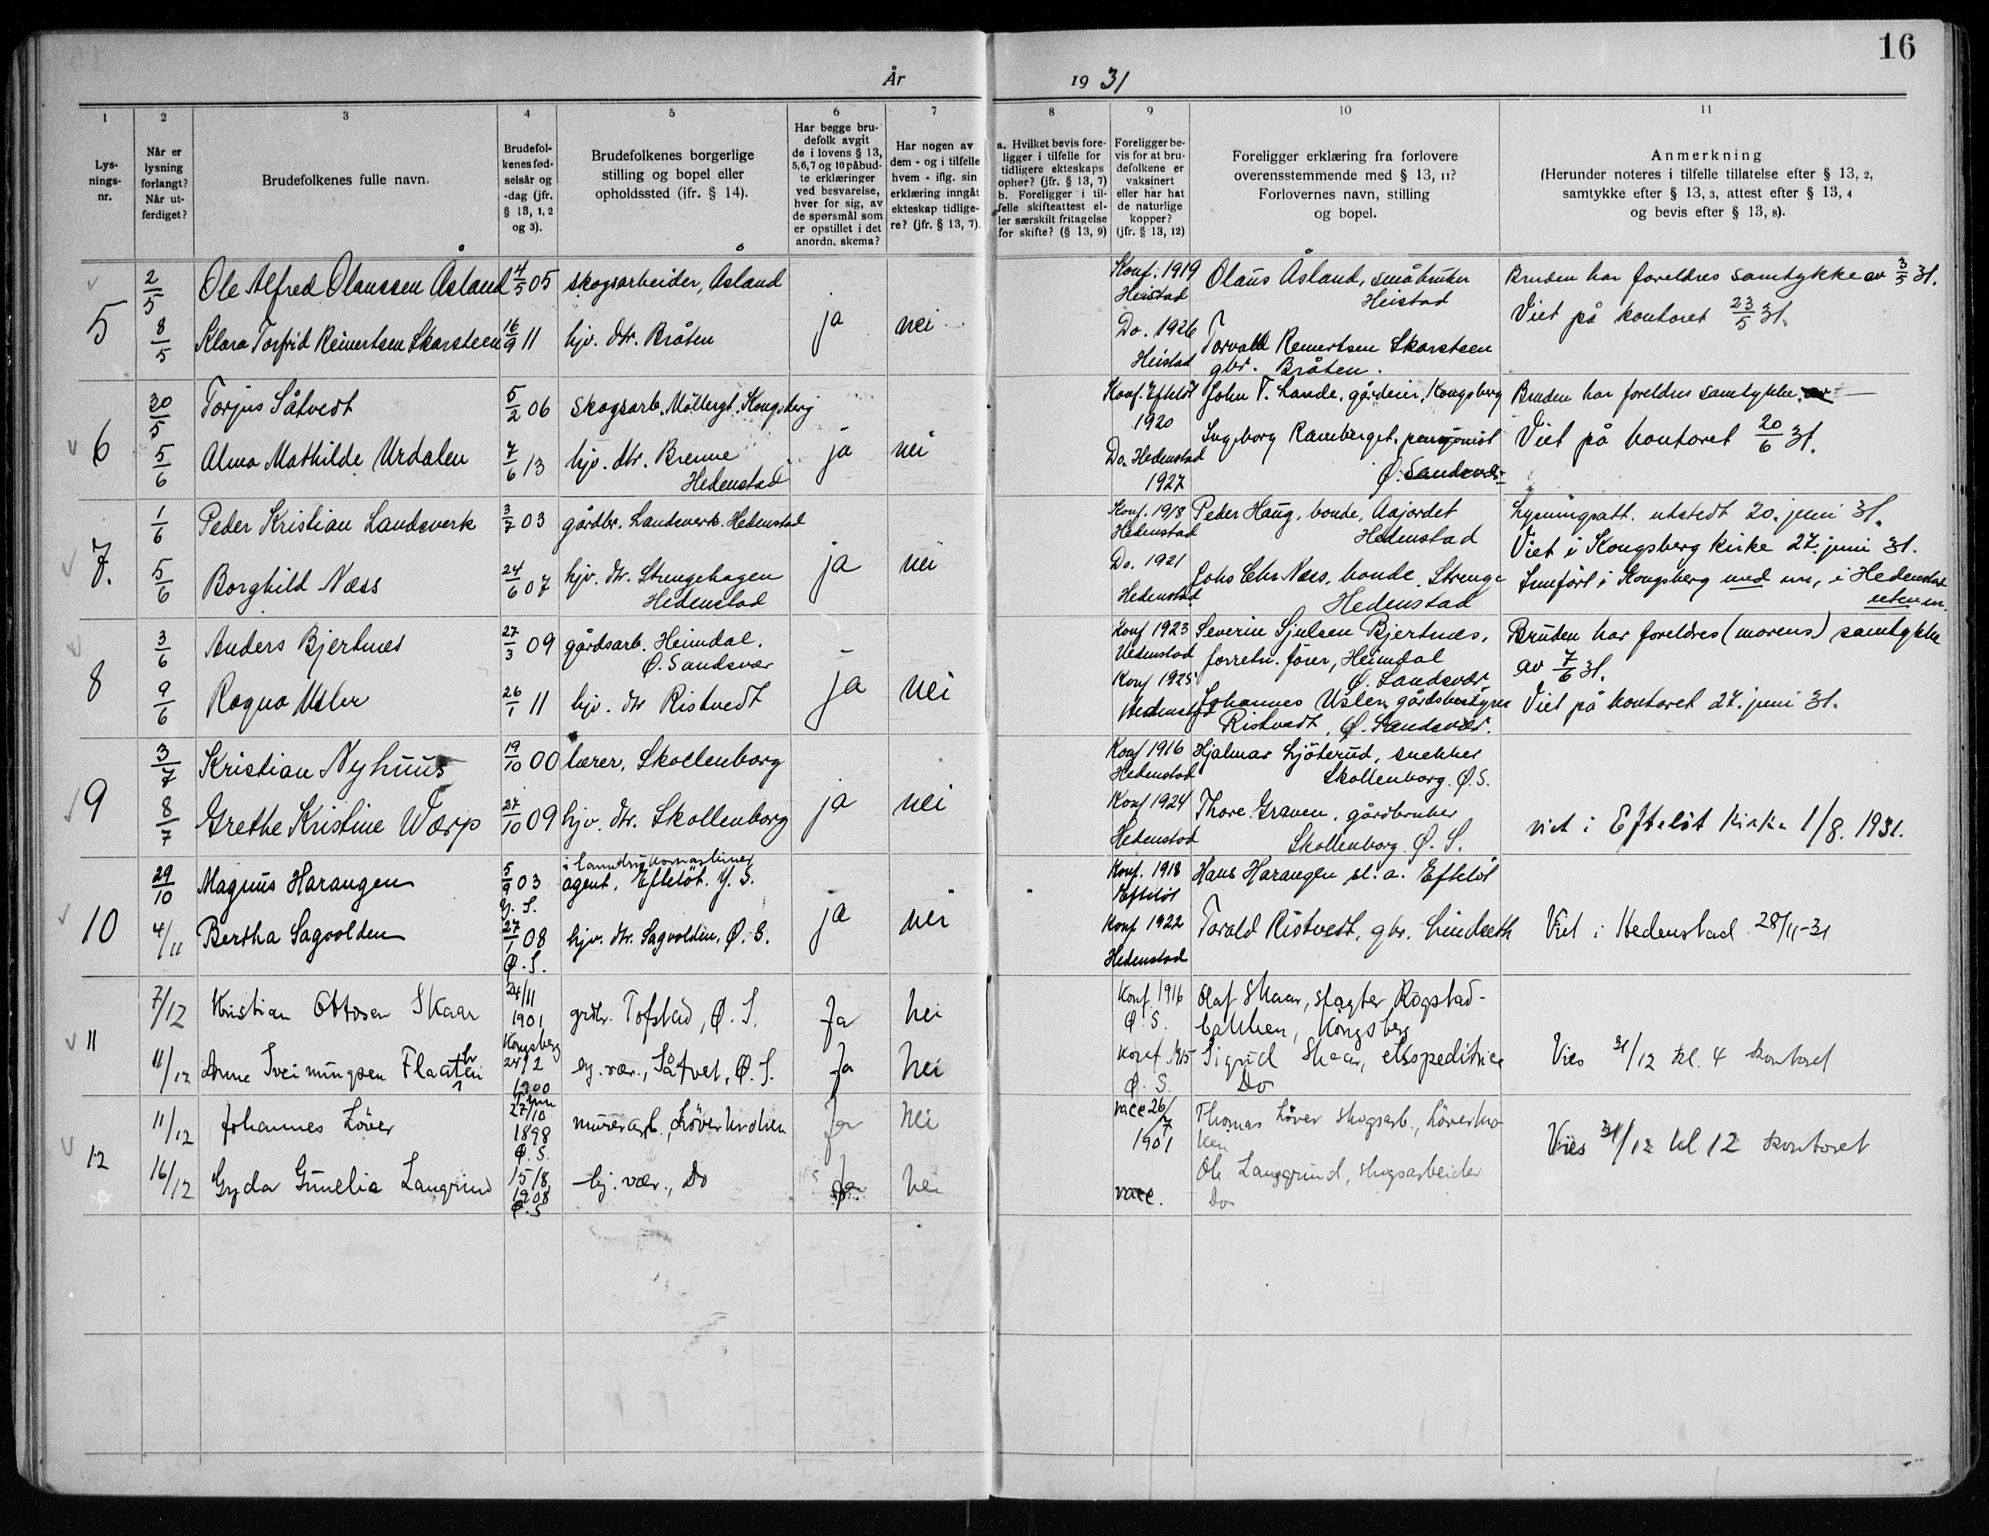 16
År 19 31
1 2 3 4 5 6 7 8 9 10 11
Lys-
nings-
nr.
Når er
lysning
forlangt?
Når ut-
ferdiget?
Brudefolkenes fulle navn.
Brudefol-
kenes fød-
selsår og
-dag (jfr.
§ 13, 1, 2
og 3).
Brudefolkenes borgerlige
stilling og bopel eller
opholdssted (ifr. § 14).
Har begge bru-
defolk avgit
de i lovens § 13,
5,6,7 og 10 påbud-
te erklæringer
ved besvarelse,
hver for sig, av
de spørsmål som
er opstillet i det
anordn. skema?
Har nogen av
dem - og i tilfelle
hvem - iflg. sin
erklæring inngått
ekteskap tidlige-
re? (jfr. § 13, 7).
a. Hvilket bevis fore-
ligger i tilfelle for
tidligere ekteskaps
ophør? (jfr. § 13, 7)
b. Foreligger i til-
felle skifteattest el-
ler særskilt fritagelse
for skifte? (§ 13, 9)
Foreligger be-
vis for at bru-
defolkene er
vaksinert
eller har hat
de naturlige
kopper?
(jfr. § 13, 12)
Foreligger erklæring fra forlovere
overensstemmende med § 13, 11?
Forlovernes navn, stilling
og bopel.
Anmerkning
(Herunder noteres i tilfelle tillatelse efter § 13, 2,
samtykke efter § 13, 3, attest efter § 13, 4
og bevis efter § 13, 8).
5
2/5 Ole Alfred Olaussen Åsland 4/5 05 skogsarbeider, Åsland
8/5 Klara Torfrid Reinertsen Skarsteen 16/9 11 hjv. dtr. Bråten ja nei
Konf. 1919
Heistad
Do. 1926
Heistad
Olaus Åsland, småbruker
Heistad
Torvald Reinertsen Skarsteen
gbr. Bråten.
Bruden har foreldres samtykke av 3/5 31.
Viet på kontoret 23/5 31.
6
20/5 Torjus Såtvedt 5/2 06 skogsarb. Møllergt. Kongsberg
5/6 Alma Mathilde Urdalen 7/6 13 hjv. dtr. Brenne
Hedenstad
ja nei
Konf. Efteløt
1920
Do. Hedenstad
1927
John T. Lande, gårdeier, Kongsberg
Ingeborg Ramberget, pensjonist
Ø. Sandsvær
Bruden har foreldres samtykke av
Viet på kontoret 20/6 31.
7.
1/6 Peder Kristian Landsverk 3/7 03 gårdbr. Landsverk. Hedenstad
5/6 Borghild Næss 24/6 07 hjv. dtr. Strengehagen
Hedenstad
ja nei
Konf. 1918
Hedenstad
Do. 1921
Hedenstad
Peder Haug, bonde, Aajordet
Hedenstad
Johs Chr Næss, bonde, Strenge
Hedenstad
Lysningsatt. utstedt 20. juni 31.
Viet i Kongsberg kirke 27. juni 31.
Innført i Kongsberg med nr, i Hedenstad
uten nr.
8
3/6 Anders Bjertnes 27/3 09 gårdsarb. Heimdal.
Ø. Sandsvær
9/6 Ragna Usler 26/1 11 hjv. dtr Ristvedt ja nei
Konf 1923
Hedenstad
Konf 1925
Hedenstad
Severin Sjulsen Bjertnes,
forretn. fører, Heimdal
Ø. Sandsvær
Johannes Usler, gårdsbestyrer
Ristvedt, Ø. Sandsvær.
Bruden har foreldres (morens) samtykke
av 7/6 31.
Viet på kontoret 27. juni 31.
9
3/7 Kristian Nyhuus 19/10 00 lærer, Skollenborg
8/7 Grethe Kristine Wærp 27/10 09 hjv. dtr. Skollenborg ja nei
Konf 1916
Hedenstad
Konf 1924
Hedenstad
Hjalmar Ljøterud, snekker
Skollenborg. Ø.S.
Thore Graven, gårdbruker
Skollenborg. Ø. S.
viet i Efteløt kirke 1/8. 1931.
10
29/10 Magnus Harangen 5/9 03
Y. S.
agent, Efteløt. Y. S.
4/11 Bertha Sagvolden 27/1 08
Ø. S.
hjv. dtr. Sagvolden, Ø. S. ja nei
Konf. 1918
Efteløt
Konf 1922
Hedenstad
Hans Harangen st. a. Efteløt
Torald Ristvedt, gbr. Lindseth
Viet i Hedenstad 28/11-31
11
7/12 Kristian Ottosen Skaar 24/11
1901
Kongsberg
grdbr. Tofstad, Ø. S. Ja nei
11/12 Anne Sveinungsen Flaaten 24/2
1900
hj. vær., Såtvet, Ø. S. Ja nei
Konf. 1916
Ø. S.
Konf. 1915
Ø. S.
Olaf Skaar, slagter Rogstad-
bakken, Kongsberg
Sigrid Skaar, ekspeditrice
Do
Vies 31/12 kl. 4 kontoret
12
11/12 Johannes Löver 27/10
1898
Ø. S.
murerarb., Löverkroken Ja nei
16/12 Gyda Gunelia Langrind 15/8
1908
Ø. S
hj. vær., Do Ja nei
vacc 26/7
1901
vacc.
Thomas Löver skogsarb., Löverkro-
ken
Ole Langgrind, skogsarbeider
Do
Vies 31/12 kl 12 kontoret